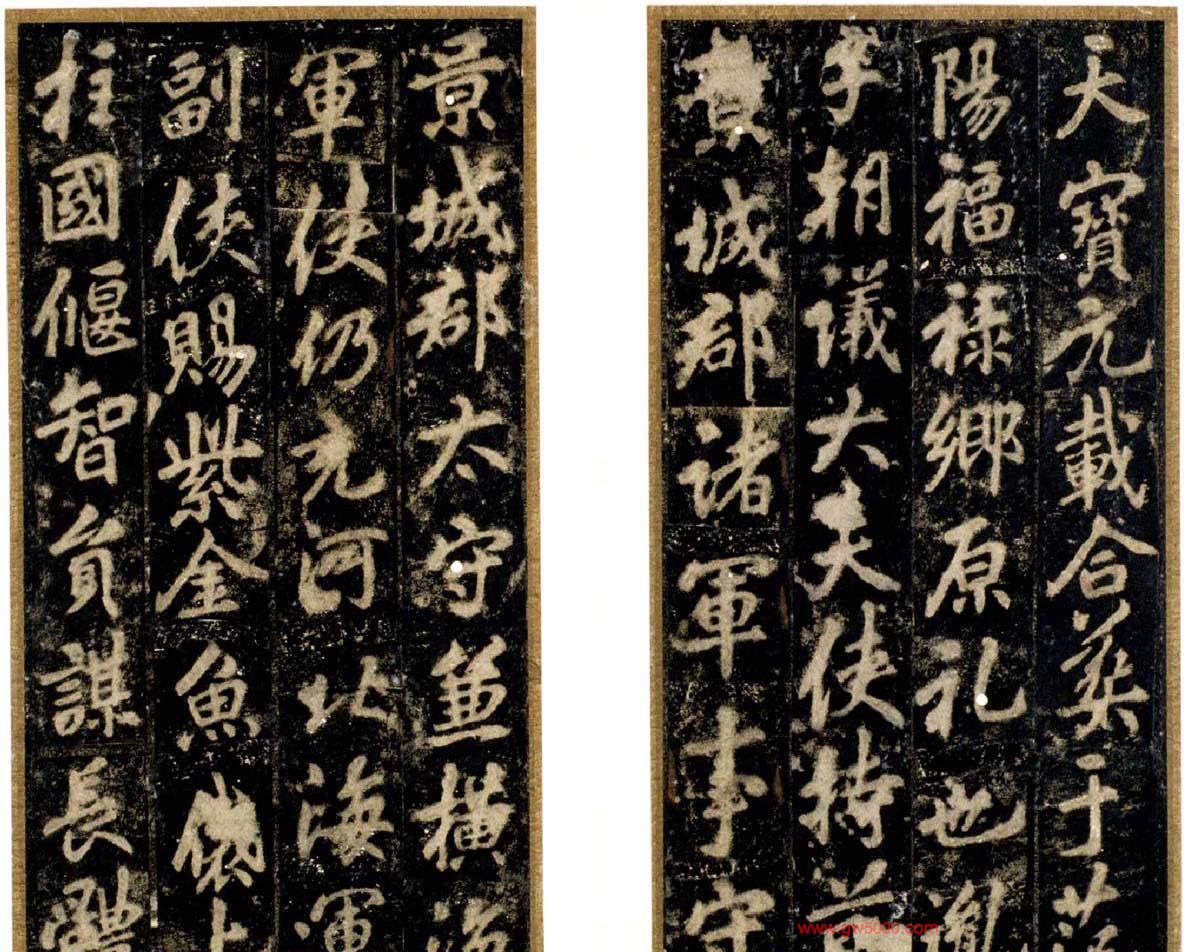 天寶元載合葬于范
陽福祿鄉原礼也胤
朝議大夫使持節
城郡諸軍事守
景城郡太守兼橫海
軍使仍充河北海運
副使賜紫金魚袋上
柱國偃智員謀長
www.gw5000.com